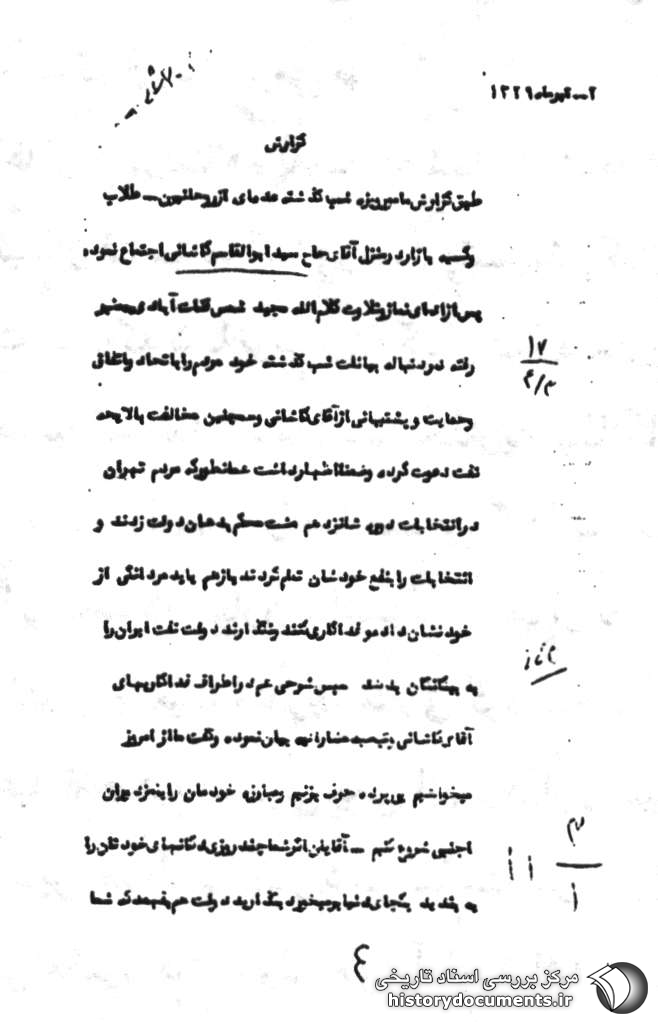 ۲ــ تیرماه ۱۳۲۹
گزارش
طبق گزارش مامور ویژه شب گذشته عده‌ای از روحانیون ــ طلاب
وکسبه بازار در منزل آقای حاج سید ابوالقاسم کاشانی اجتماع نموده
پس از ادای نماز و تلاوت کلام‌الله مجید شمس قنات‌آبادی بمنبر
رفته و در دنباله بیانات شب گذشته خود مردم را باتحاد و اتفاق
و حمایت و پشتیبانی از آقای کاشانی و همچنین مخالفت با لایحه
نفت دعوت کرده و ضمنا اظهار داشت همانطور که مردم تهران
در انتخابات دوره شانزدهم مشت محکم بدهان دولت زدند و
انتخابات را بنفع خودشان تمام کردند باز هم باید مردانگی از
خود نشان داده و فداکاری کنند و نگذارند دولت نفت ایران را
به بیگانگان بدهد سپس شرحی هم در اطراف فداکاریهای
آقای کاشانی و تبعید مشارالیه بیان نموده و گفت ما از امروز
میخواهیم بی‌پرده حرف بزنیم و مبارزه خودمان را
اجنبی شروع کنیم ــ آقایان اگر شما چند روزی دکانهای خودتان را
به بندید بکجای دنیا بر میخورد بگذارید دولت هم بفهمد که شما
۱۷
۴/۳
۴
مرکز بررسی اسناد تاریخی
historydocuments.ir